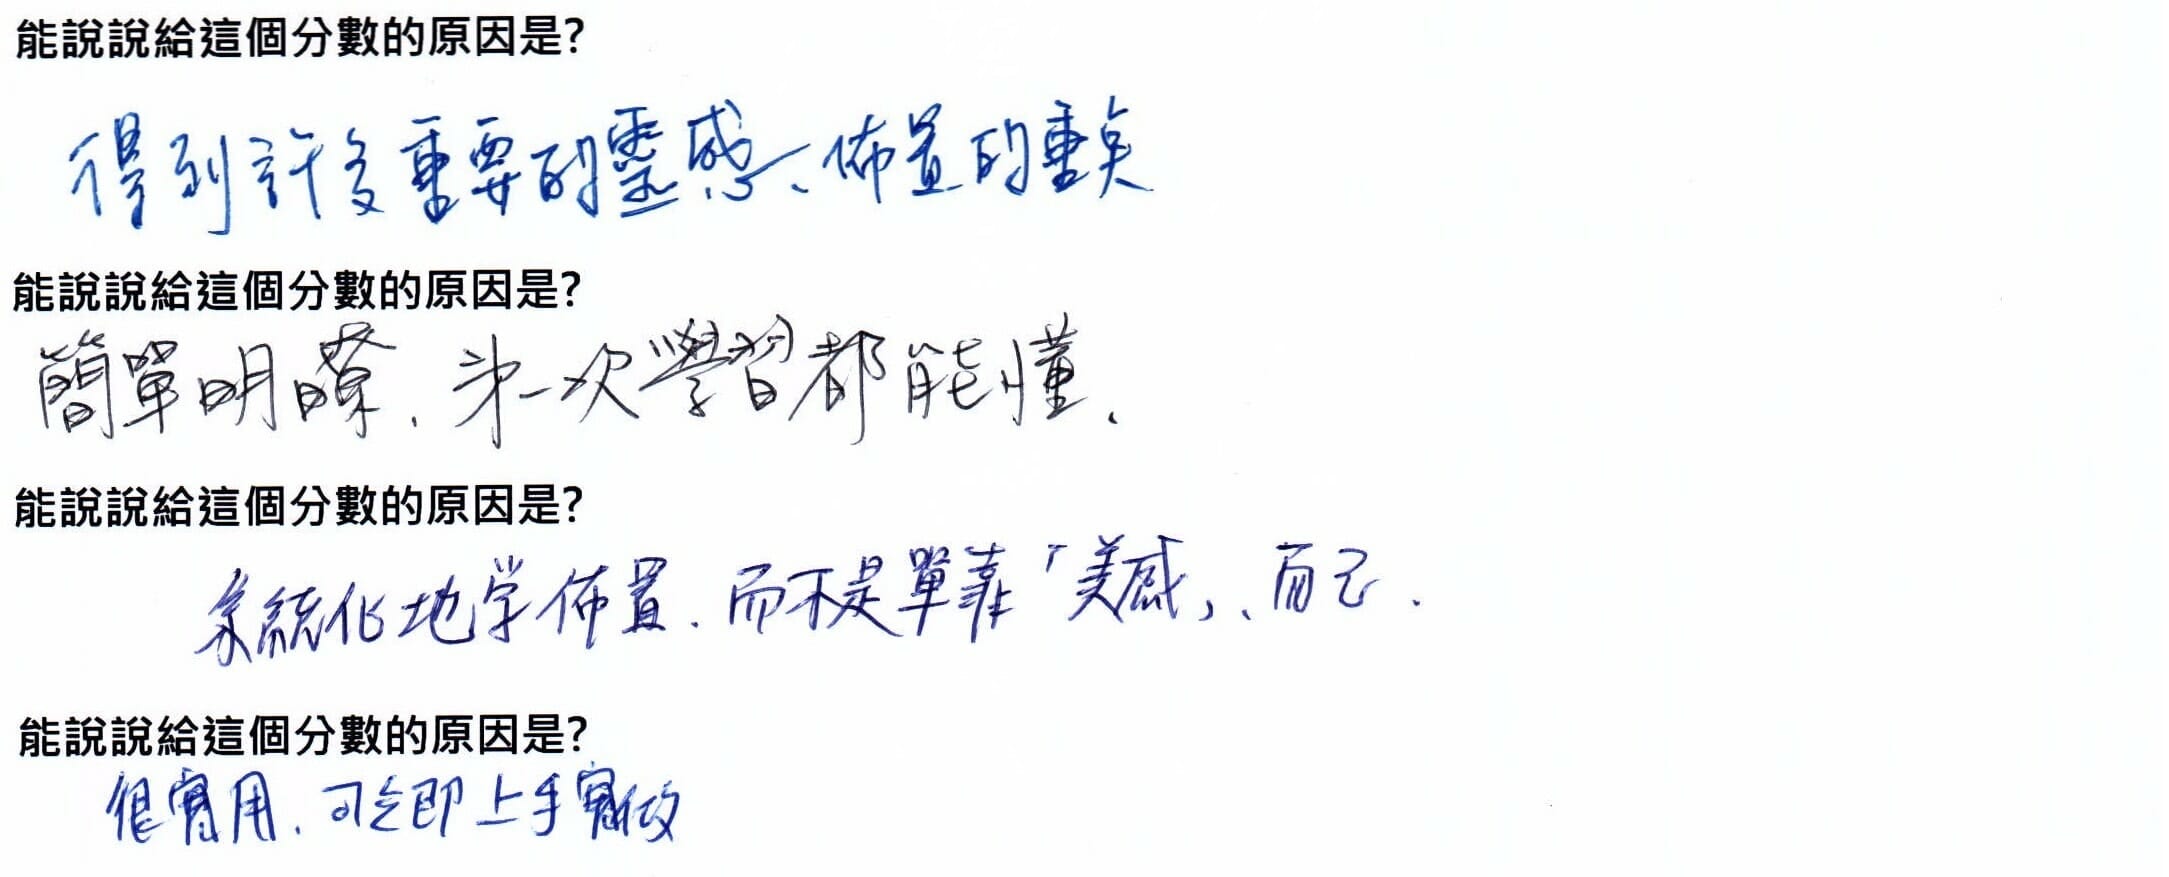 能說說給這個分數的原因是?
得到許多重要的靈感、佈置的重点
能說說給這個分數的原因是?
簡單明瞭,第一次學習都能懂.
能說說給這個分數的原因是?
系統化地学佈置.而不是單靠「美感」、而已.
能說說給這個分數的原因是?
很實用.可立即上手實做